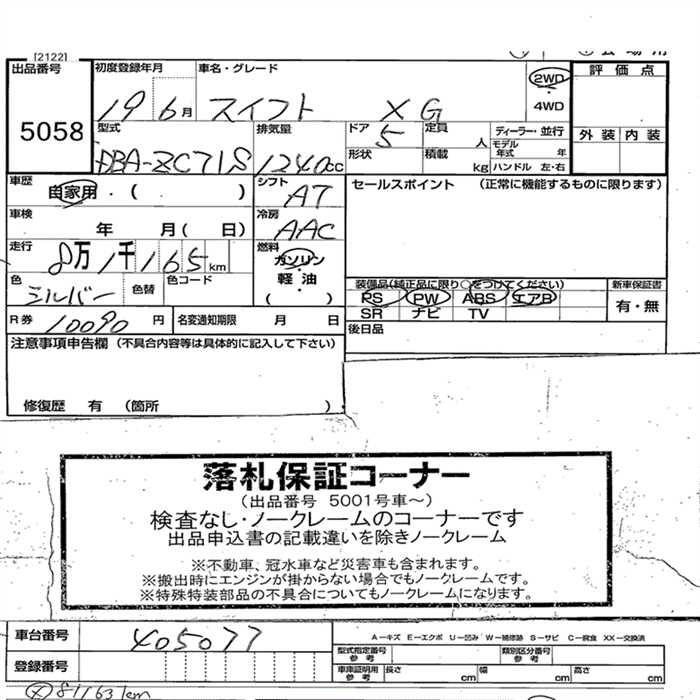 [2122]
出品番号 初度登録年月 車名・グレード 評価点
5058 19 6月 スイフト XG 2WD
4WD 外装 内装
型式 排気量 ドア 定員 人 ディーラー・並行
DBA-ZC71S 1240cc 5 モデル年式 年
形状 積載 kg ハンドル 左・右
車歴 自家用・( ) シフト AT セールスポイント (正常に機能するものに限ります)
車検 年 月( 日) 冷房 AAC
走行 8万1千165km 燃料 ガソリン
軽油
( )
色 シルバー 色替 色コード
装備品(純正品に限り○をつけてください) 新車保証書
PS PW ABS エアB 有・無
SR ナビ TV
R券 10090円 名変通知期限 月 日 後日品
注意事項申告欄 (不具合内容等は具体的に記入して下さい)
修復歴 有 (箇所 )
落札保証コーナー
(出品番号 5001号車~)
検査なし・ノークレームのコーナーです
出品申込書の記載違いを除きノークレーム
※不動車、冠水車など災害車も含まれます。
※搬出時にエンジンが掛からない場合でもノークレームです。
※特殊特装部品の不具合についてもノークレームになります。
車台番号 405077 A-キズ E-エクボ U-凹み W-補修跡 S-サビ C-腐食 XX-交換済
型式指定番号 参考 類別区分番号 参考
登録番号 車庫証明用 参考 長さ cm 幅 cm 高さ cm
81163km